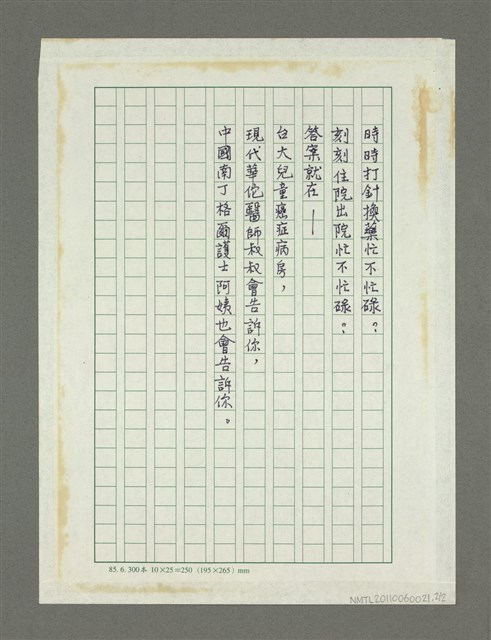 時時打針換藥忙不忙碌？
刻刻住院出院忙不忙碌？
答案就在——
台大兒童癌症病房，
現代華佗醫師叔叔會告訴你，
中國南丁格爾護士阿姨也會告訴你。
85.6.300本 10×25=250 (195×265) mm
NMTL20110060021,2/2